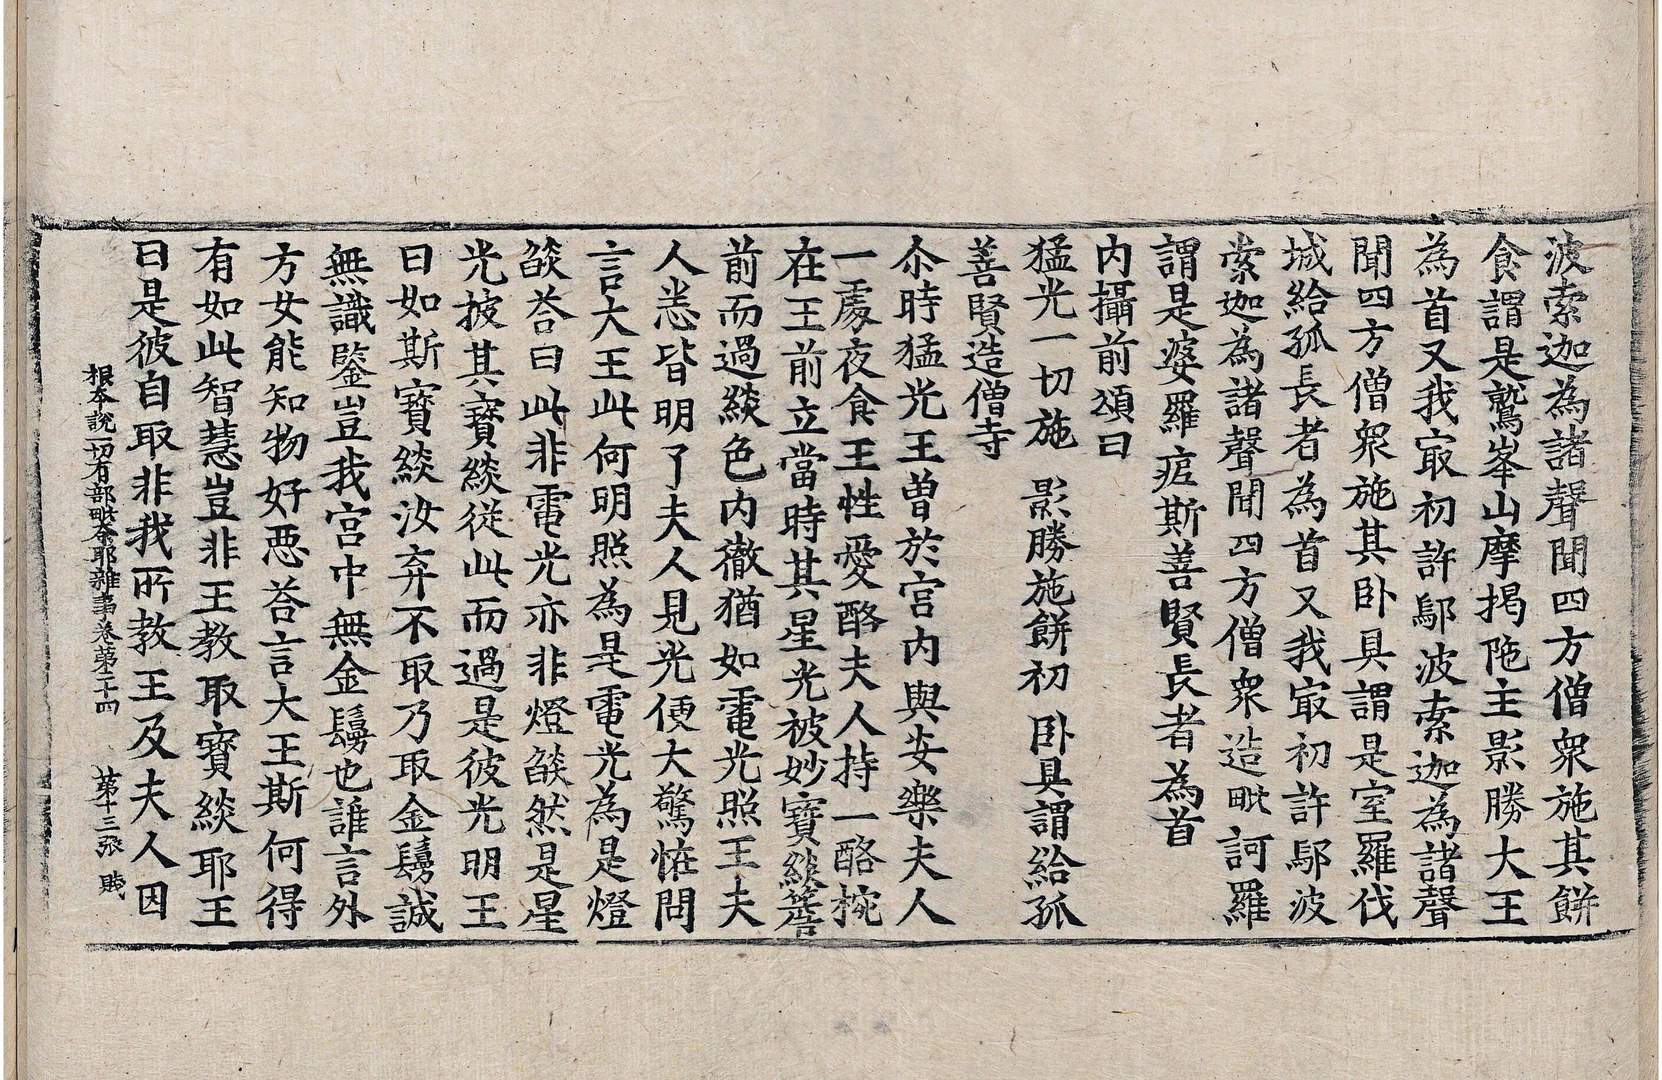 波索迦為諸聲聞四方僧衆施其餅
食謂是鷲峯山摩揭陁主影勝大王
為首又我㝡初許鄔波索迦為諸聲
聞四方僧衆施其卧具謂是室羅伐
城給孤長者為首又我㝡初許鄔波
索迦為諸聲聞四方僧衆造毗訶羅
謂是婆羅痆斯善賢長者為首
内攝前頌曰
猛光一切施 影勝施餅初 卧具謂給孤
善賢造僧寺
尒時猛光王曽於宮内與安樂夫人
一處夜食王性愛酪夫人持一酪椀
在王前立當時其星光被妙寶緂
前而過緂色内徹猶如電光照王夫
人悉皆明了夫人見光便大驚恠問
言大王此何明照為是電光為是燈
燄荅曰此非電光亦非燈燄然是星
光披其寶緂從此而過是彼光明王
曰如斯寶緂汝弃不取乃取金鬘誠
無識鑒豈我宮中無金鬘也誰言外
方女能知物好惡荅言大王斯何得
有如此智慧豈非王教取寶緂耶王
曰是彼自取非我所教王及夫人因
根本說一切有部毗奈耶雜事卷第二十四 第十三張